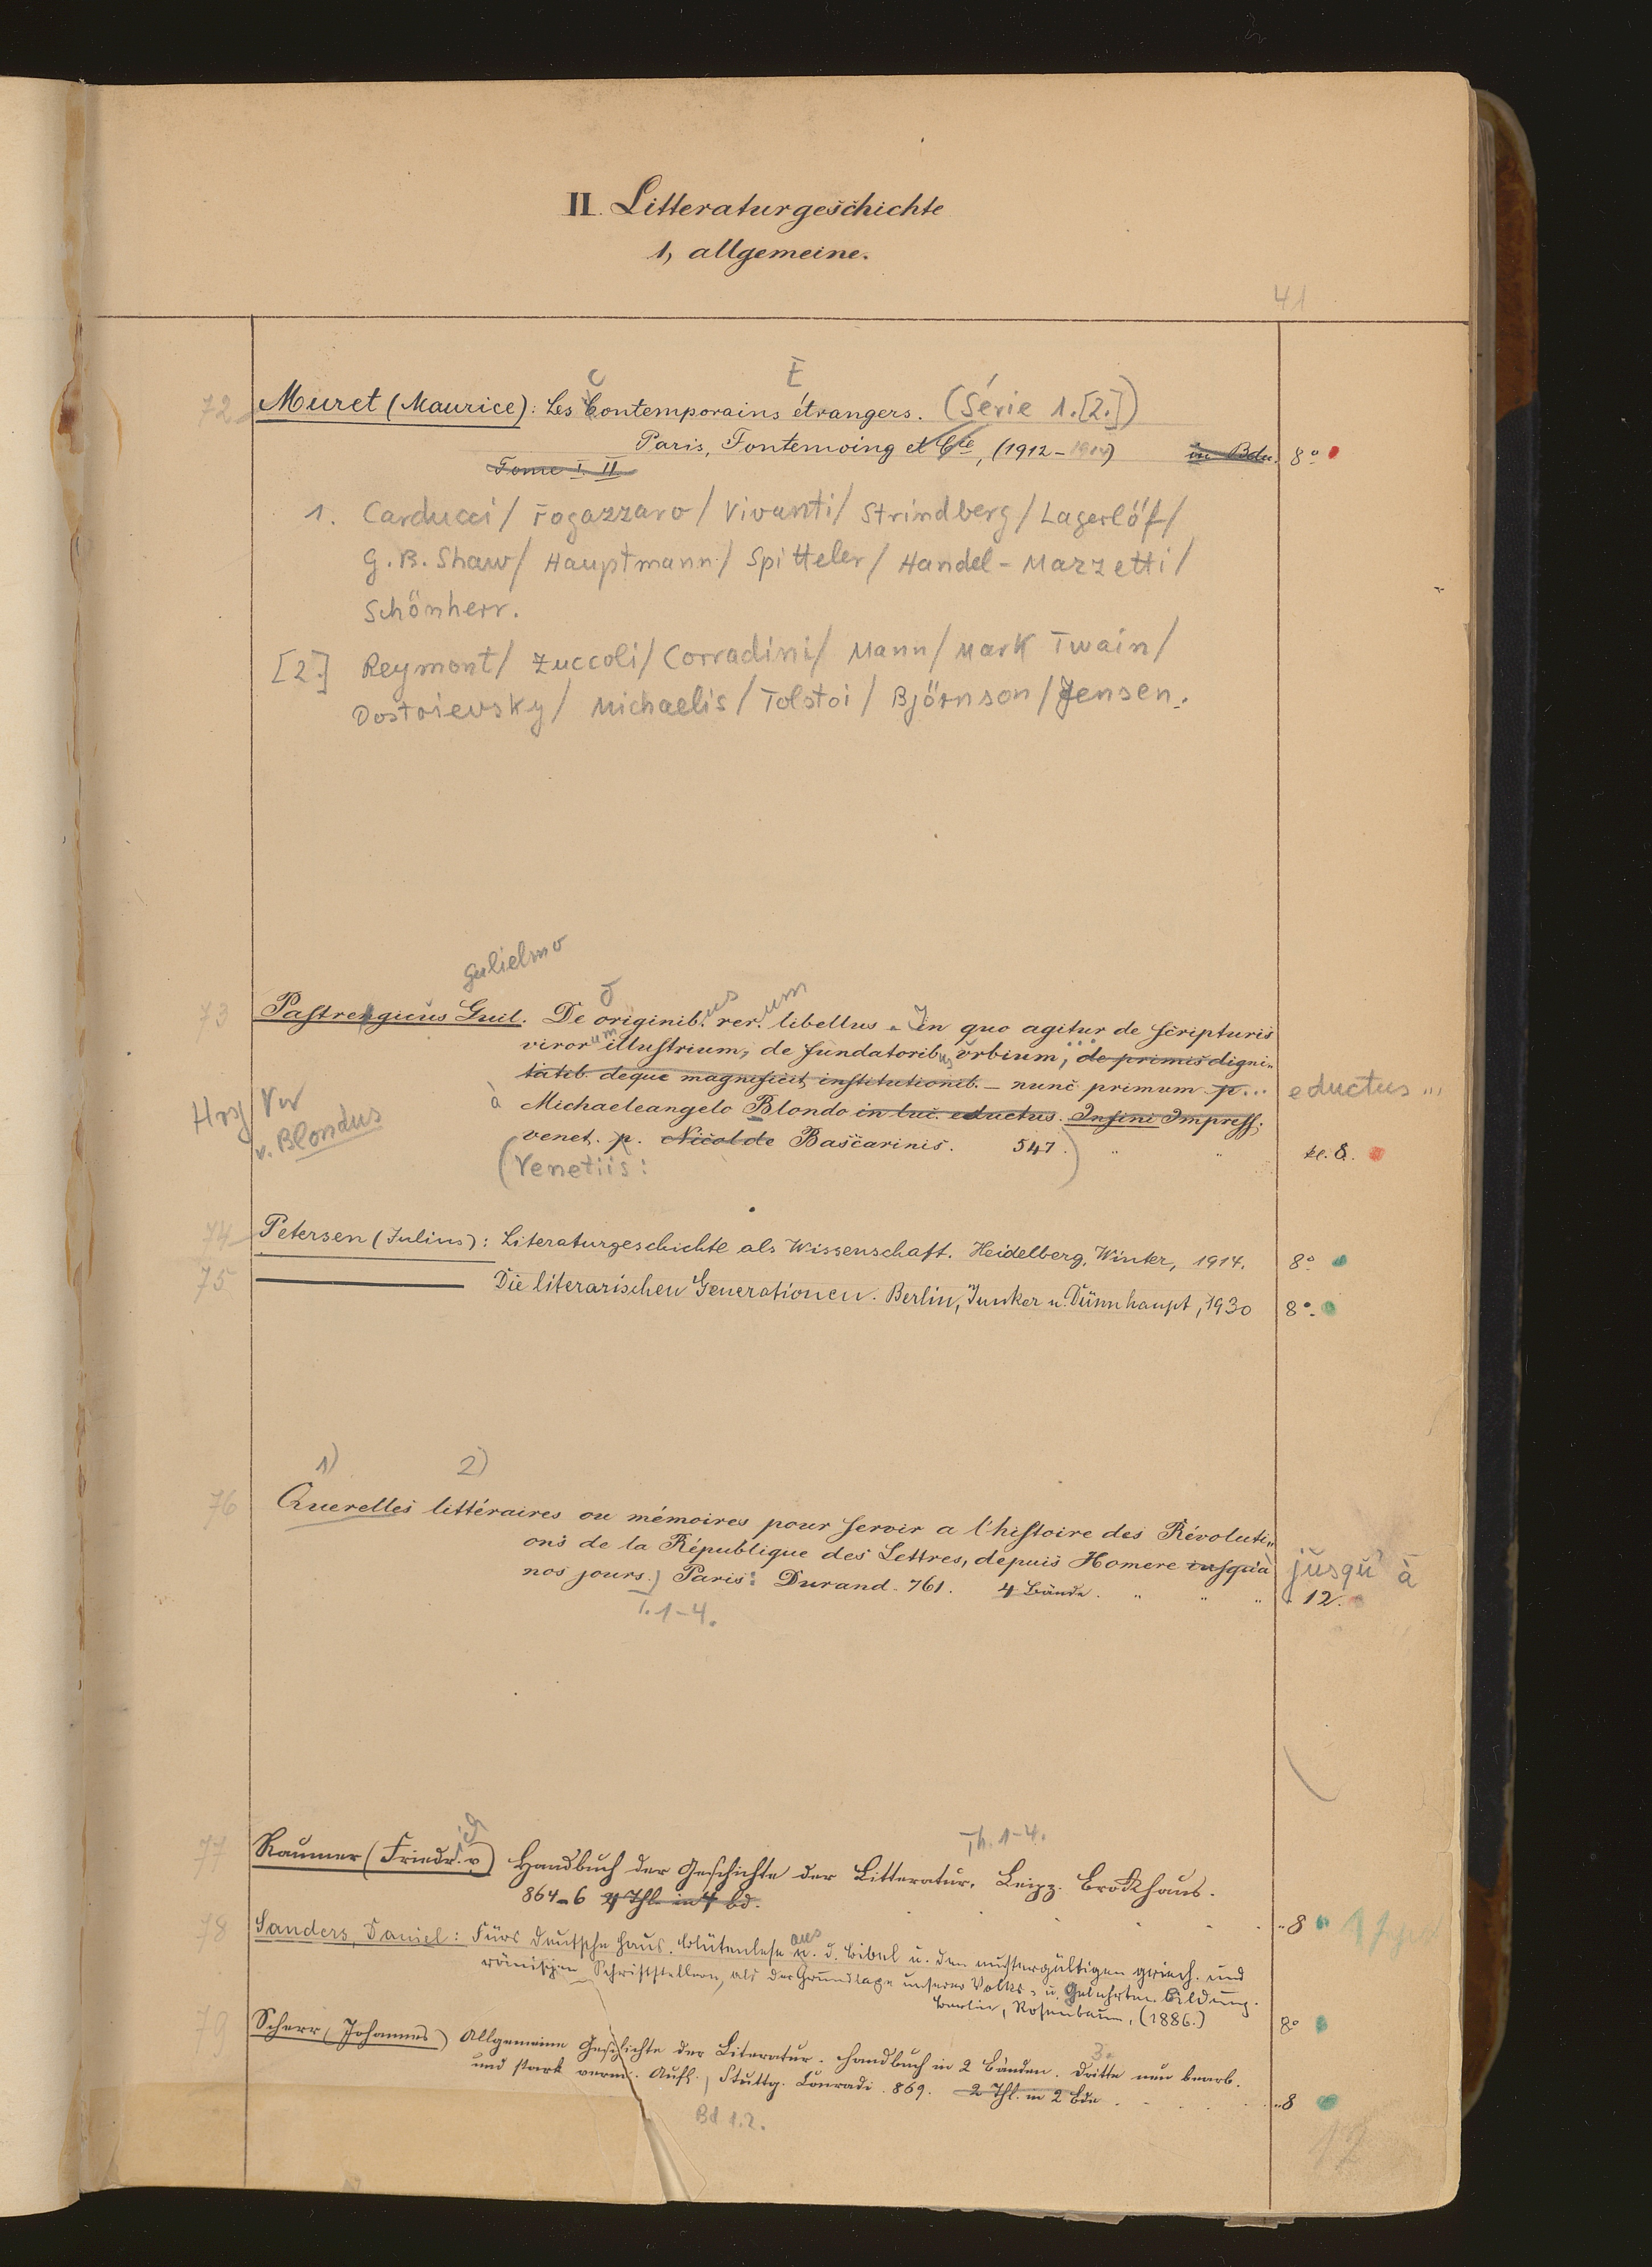 II. Litteraturgeschichte
1, allgemeine.
41
C E
72 Muret (Maurice): Les Contemporains étrangers. (Série 1.[2.])
Paris, Fontemoing et Cie, (1912-1914) in Bdn. 8°
Tome I. II
1. Carducci/ Fogazzaro/ Vivanti/ Strindberg/ Lagerlöf/
G. B. Shaw/ Hauptmann/ Spitteler/ Handel-Mazzetti/
Schönherr.
[2.] Reymont/ Zuccoli/ Corradini/ Mann/ Mark Twain/
Dostoievsky/ Michaelis/ Tolstoi/ Björnson/ Jensen.
Gulielmo
O us um
73 Pastrengicus Guil. De originib. rer. libellus. In quo agitur de scripturis
viror um illustrium, de fundatorib us urbium, ... de primis digni-
tatib. deque magnificit, institutionib. - nunc primum p... eductus ...
Hrg Vw
v. Blondus
à Michaeleangelo Blondo in luc. eductus. Insini Impress;
venet. p. Nicol de Bascarinis. 547. kl. 8.
(Venetiis: )
74 Petersen (Julius): Literaturgeschichte als Wissenschaft. Heidelberg, Winter, 1914. 8°.
75 ——— Die literarischen Generationen. Berlin, Junker u. Dünnhaupt, 1930 8°.
1) 2)
76 Querelles littéraires ou mémoires pour servir a l'histoire des Révoluti-
ons de la République des Lettres, depuis Homere iusqu'a jusqu' à
nos jours.) Paris: Durand. 761. 4 Bände. " " " 12.
T. 1-4.
Th. 1-4.
77 Raumer (Friedr. v) Handbuch der Geschichte der Litteratur. Leipz. Brockhaus.
864-6 4 Thl. in 4 bd. " 8
78 Sanders, Daniel: Fürs deutsche Haus. Blütenlese aus d. Bibel u. den mustergültigen griech. und
römischen Schriftstellern, als der Grundlage unserer Volks- u. Gelehrten Bildung.
Berlin, Rosenbaum, (1886.) 8°
3.
79 Scherr (Johannes) Allgemeine Geschichte der Literatur. Handbuch in 2 Bänden. Dritte neu bearb.
und stark verm. Aufl., Stuttg. Conradi. 869. 2 Thl. in 2 Bde " 8
Bd 1.2.
12